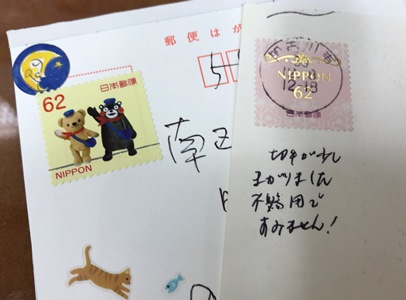 郵便はが
62
日本郵便
NIPPON
南
NIPPON
62
日本郵便
12.18
切手が少し
まがりました
不器用で
すみません!